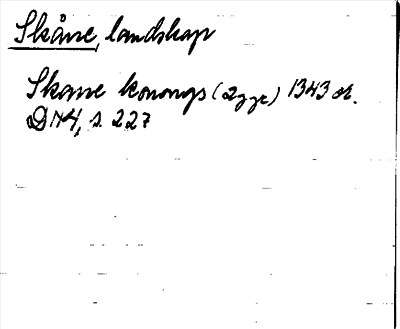 Skåne, landskap
Skane konongs (2 ggr) 1343 or.
DN 4, s. 227